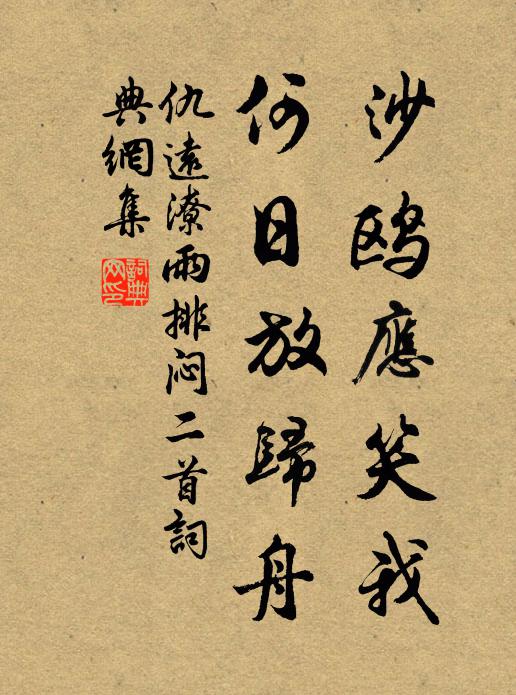 沙鷗應笑我
何日放歸舟
仇遠潦雨排闷二首詞
典網集
詞典
网印